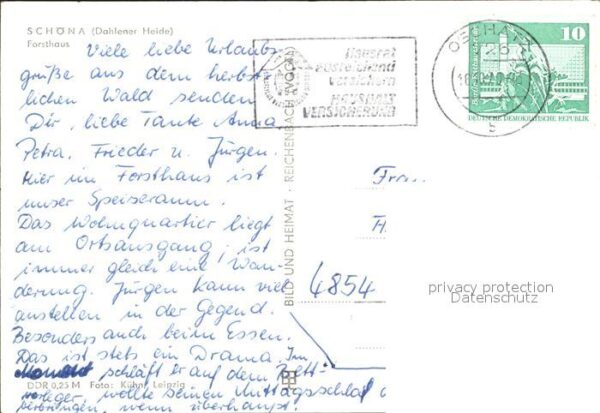 SCHÖNA (Dahlener Heide)
Forsthaus
Viele liebe Urlaubs-
grüße aus dem herbst-
lichen Wald senden
Dir, liebe Tante Anna,
Petra, Frieder u. Jürgen.
Hier im Forsthaus ist
unser Speiseraum.
Das Wohnquartier liegt
am Ortsausgang, ist
immer gleich eine Wan-
derung. Jürgen kann viel
anstellen in der Gegend.
Besonders auch beim Essen.
Das ist stets ein Drama. Im
Moment schläft er auf dem Bett-
vorleger, wollte seinen Mittagsschlaf
wenn überhaupt.
DDR 0,25 M Foto: Kühn, Leipzig
BILD UND HEIMAT · REICHENBACH (VOGTL)
Hausrat
versichern
HAUSHALT
VERSICHERUNG
OSCHATZ
10
DEUTSCHE DEMOKRATISCHE REPUBLIK
Frau
4854
privacy protection
Datenschutz